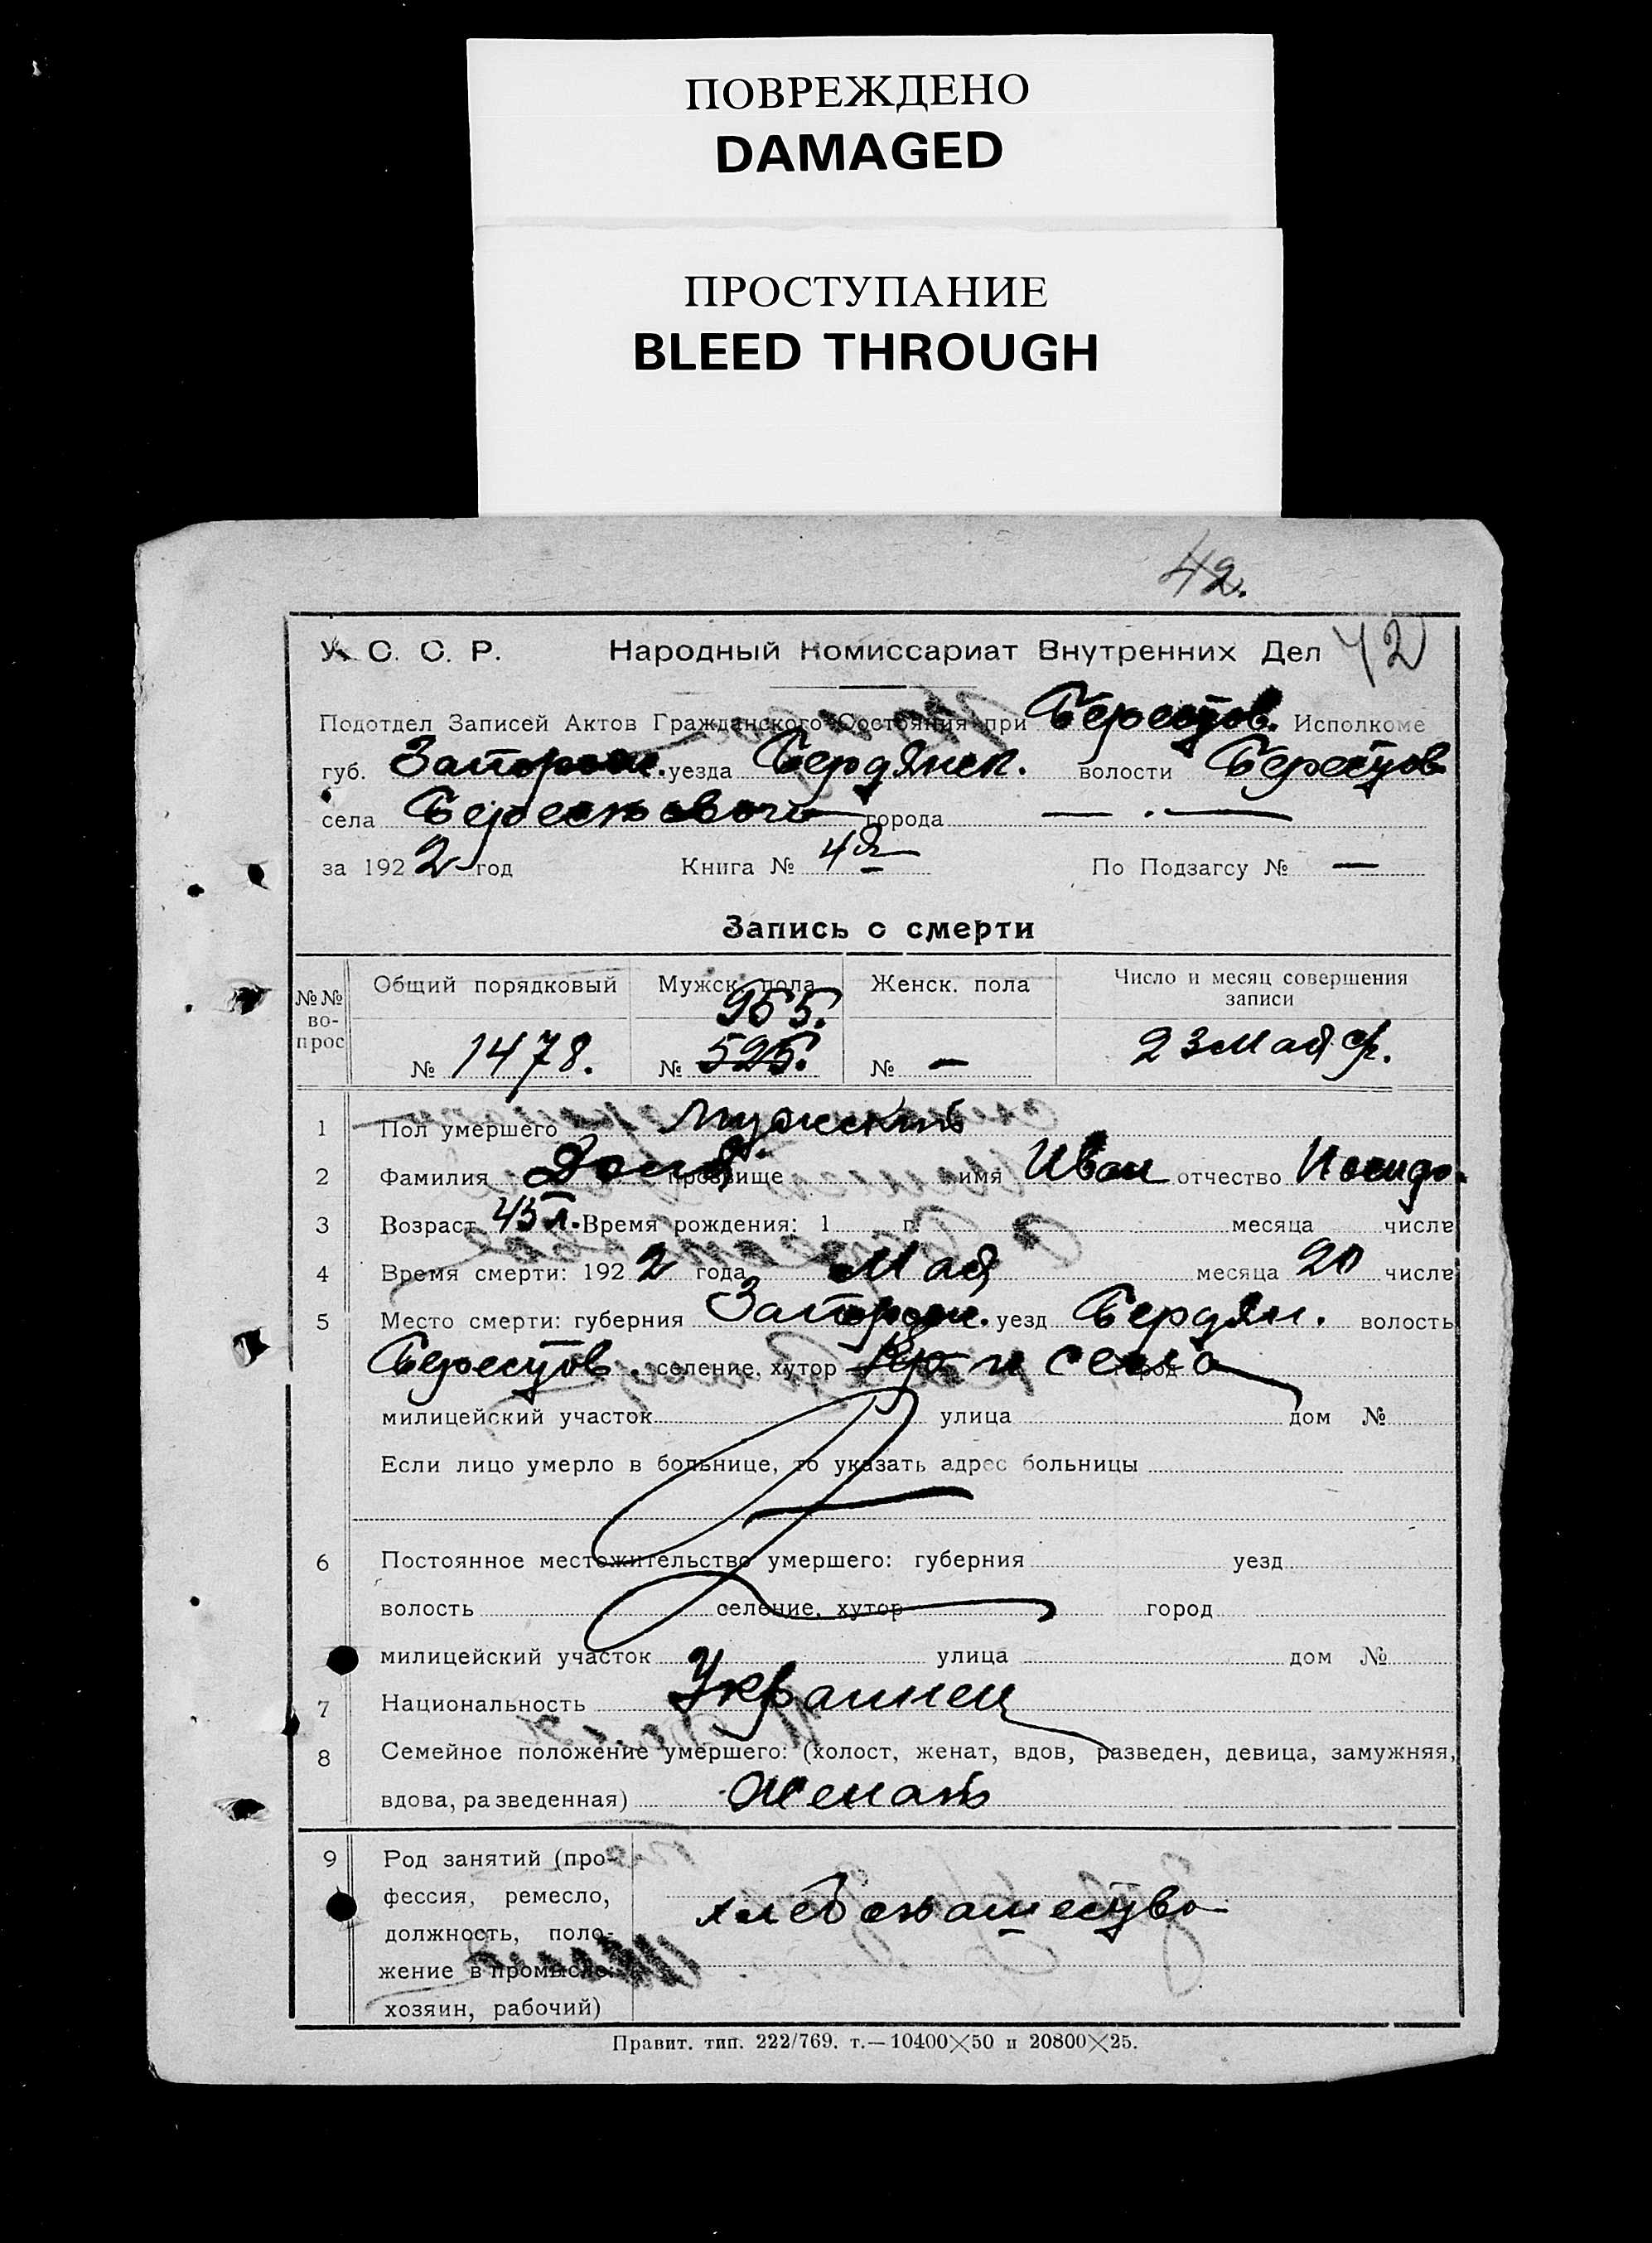 ПОВРЕЖДЕНО
DAMAGED
ПРОСТУПАНИЕ
BLEED THROUGH
42.
У. С. С. Р. Народный Комиссариат Внутренних Дел 42
Подотдел Записей Актов Гражданского Состояния при Берестов. Исполкоме
губ. Запорож. уезда Бердянск. волости Берестов
села города — . —
за 1922 год Книга № По Подзагсу № —
Запись о смерти
№№ во- прос Общий порядковый Мужск. пола Женск. пола Число и месяц совершения записи
955.
№ 1478. № 525. № — 23 Мая
1 Пол умершего Мужский
2 Фамилия прозвище имя Иван отчество
3 Возраст 45 л. Время рождения: 1 г. месяца числа
4 Время смерти: 1922 года Мая месяца 20 числа
5 Место смерти: губерния Запорож. уезд Бердян. волость
Берестов. селение, хутор села город
милицейский участок улица дом №
Если лицо умерло в больнице, то указать адрес больницы
6 Постоянное местожительство умершего: губерния уезд
волость селение, хутор город
милицейский участок улица дом №
7 Национальность Украинец
8 Семейное положение умершего: (холост, женат, вдов, разведен, девица, замужняя,
вдова, разведенная) Женат
9 Род занятий (про-
фессия, ремесло,
хлебопашество
должность, поло-
жение в промысле:
хозяин, рабочий)
Правит. тип. 222/769. т.—10400×50 и 20800×25.